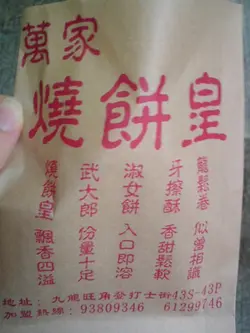 萬家
燒餅皇
似曾相識
牙擦酥 香甜鬆軟
淑女餅 入口即溶
武大郎 份量十足
燒餅皇 飄香四溢
地址：九龍旺角登打士街43S-43P
加盟熱線：93809346 61299746